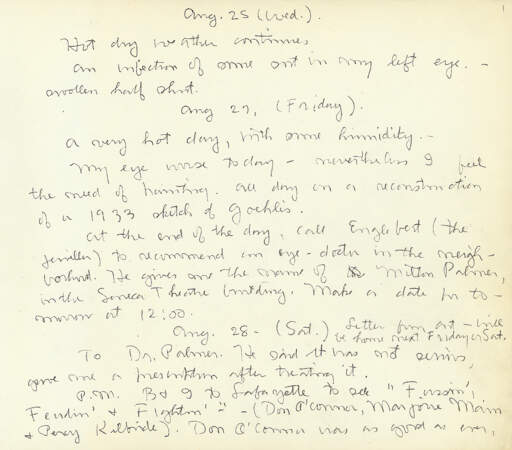 1
Aug. 25 (Wed.).
Hot dry weather continues
an infection of some sort in my left eye. -
swollen half shut.
Aug 27, (Friday).
A very hot day, with some humidity. -
My eye worse today - nevertheless I feel
the need of painting. All day on a reconstruction
of a 1933 sketch of Goehlis.
At the end of the day, call Englebert (the
jeweller) to recommend an eye-doctor in the neigh-
borhood. He gives me the name of Milton Palmer,
in the Seneca Theatre building. Make a date for to-
morrow at 12:00.
Aug. 28 - (Sat.) Letter from Art - will
be home next Friday or Sat.
To Dr. Palmer. He said it was not serious,
gave me a prescription after treating it.
P.M. B & I to Lafayette to see "Feusin',
Feudin' & Fightin'" - (Don O'Connor, Marjorie Main
& Percy Kilbride). Don O'Connor was as good as ever,